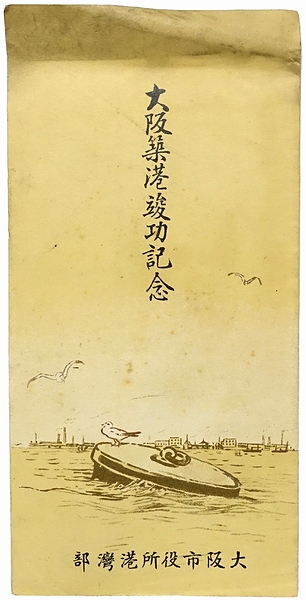 大阪築港竣功記念
大阪市役所港灣部